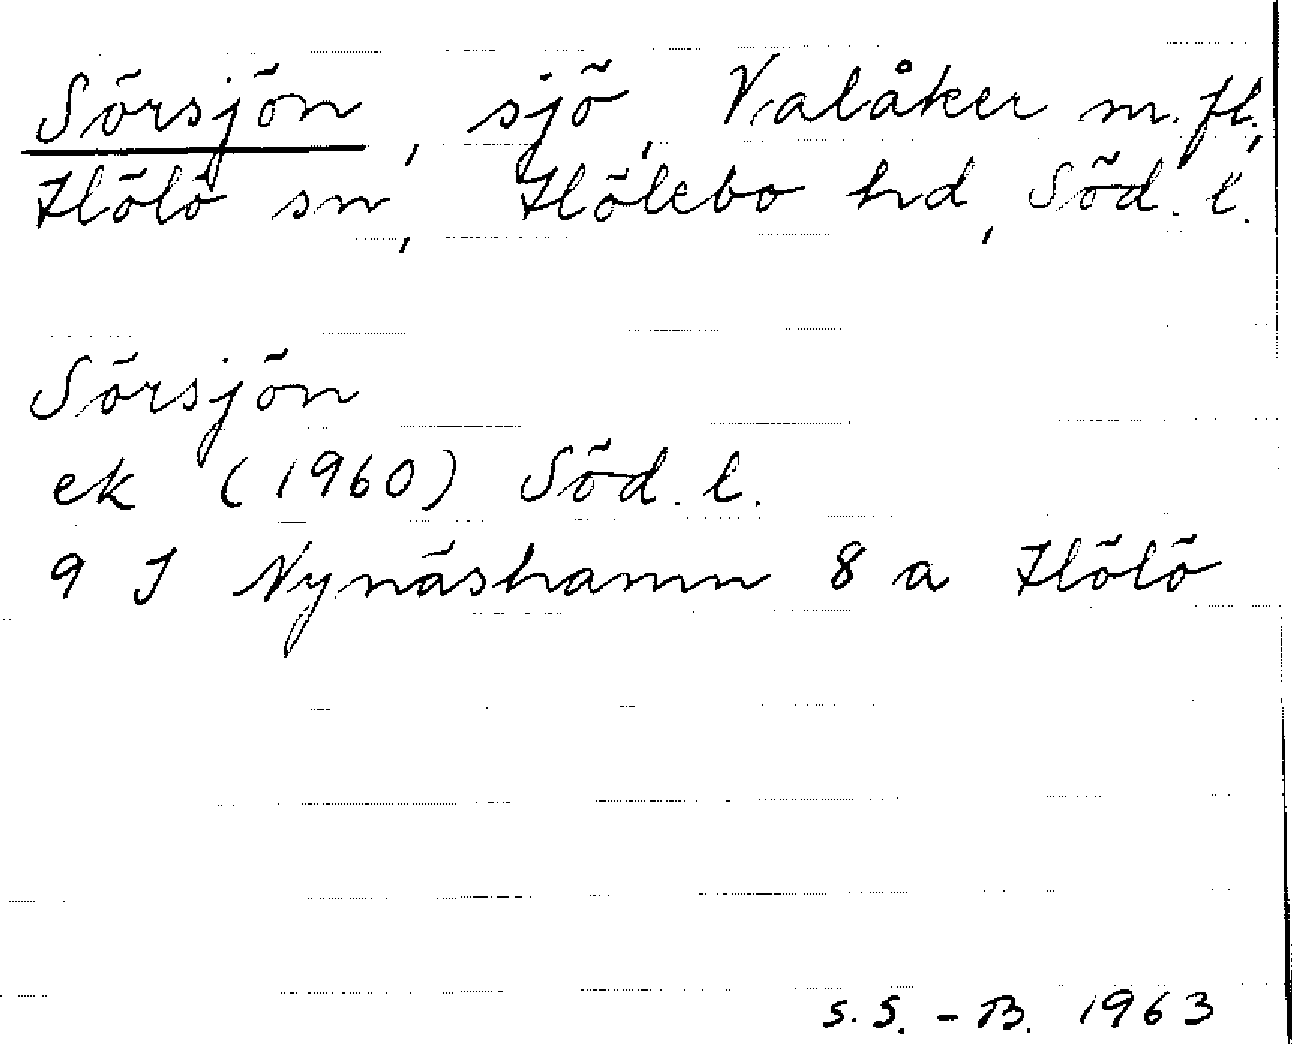 Sörsjön, sjö, Valåker m.fl.,
Hölö sn, Hölebo hd, Söd. l.
Sörsjön
ek (1960) Söd. l.
9 I Nynäshamn 8 a Hölö
S.S.-B. 1963